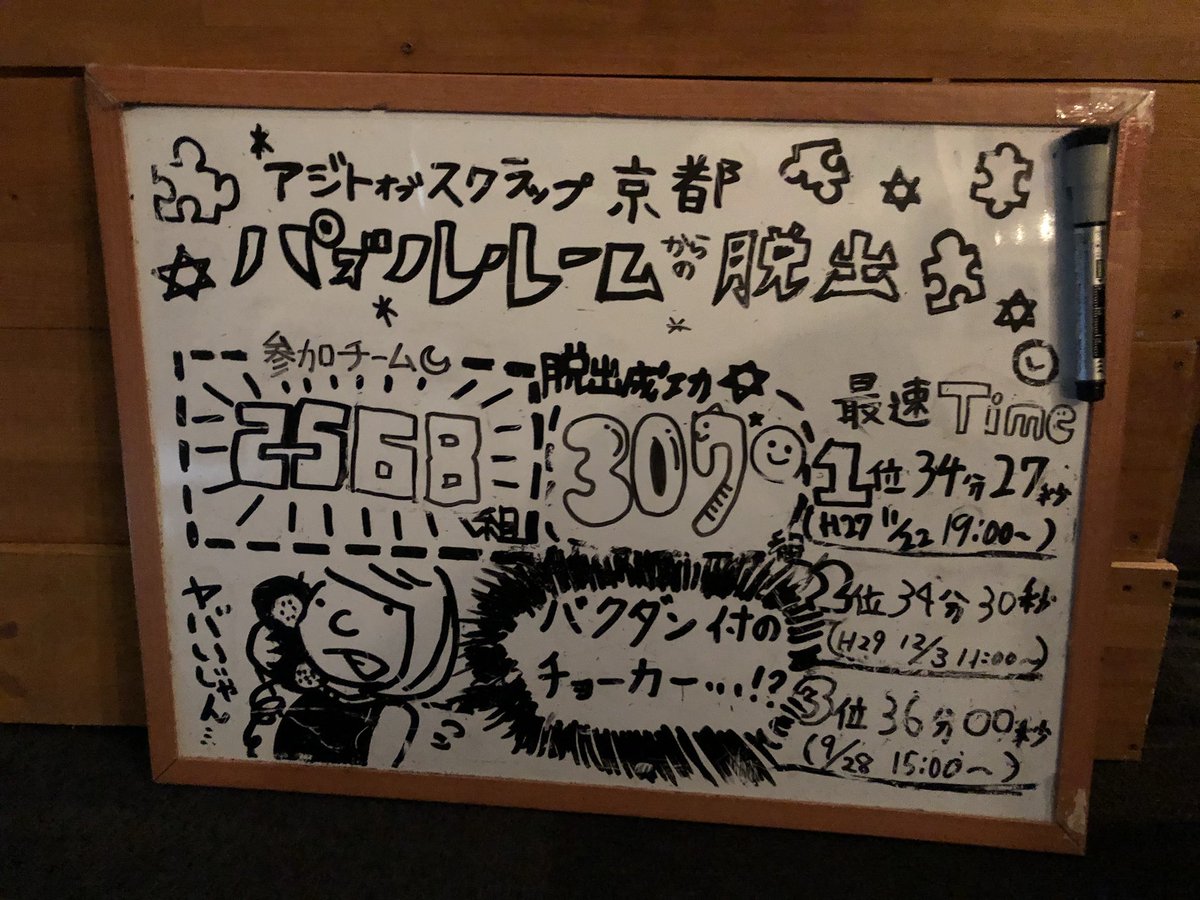 アジトオブスクラップ 京都
パズルルームからの脱出
参加チーム
2568
組
脱出成功
307
組
最速 Time
1位 34分27秒
(H27 11/22 19:00~)
2位 34分30秒
(H29 12/3 11:00~)
3位 36分00秒
(9/28 15:00~)
バクダン付の
チョーカー…!?
ヤバいじゃん…